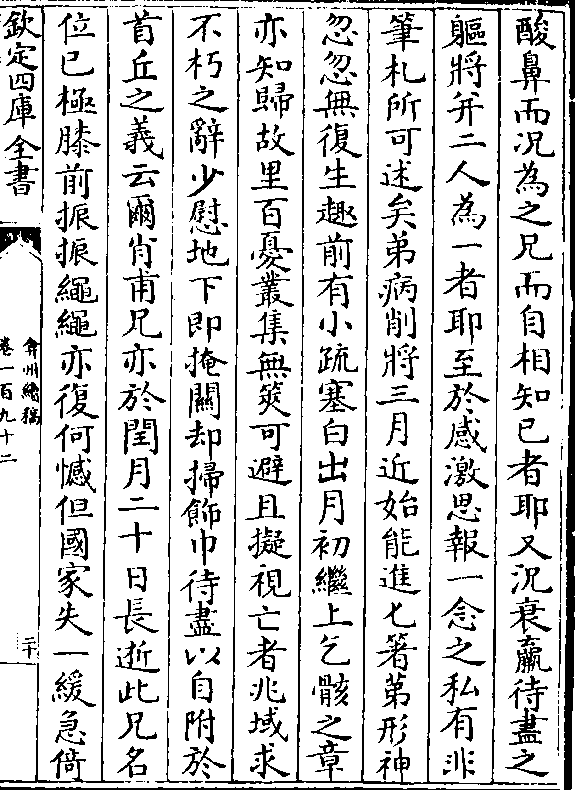 酸鼻而况為之兄而自相知已者耶又况衰羸待盡之
軀將并二人為一者耶至於感激思報一念之私有非
筆札所可述矣弟病削將三月近始能進匕箸第形神
忽忽無復生趣前有小疏塞白出月初繼上乞骸之章
亦知歸故里百憂叢集無筴可避且擬視亡者兆域求
不朽之辭少慰地下即掩關却掃飾巾待盡以自附於
首丘之義云爾肖甫兄亦於閏月二十日長逝此兄名
位已極膝前振振繩繩亦復何憾但國家失一緩急倚
欽定四庫全書
弇州續稿
卷一百九十二
二十